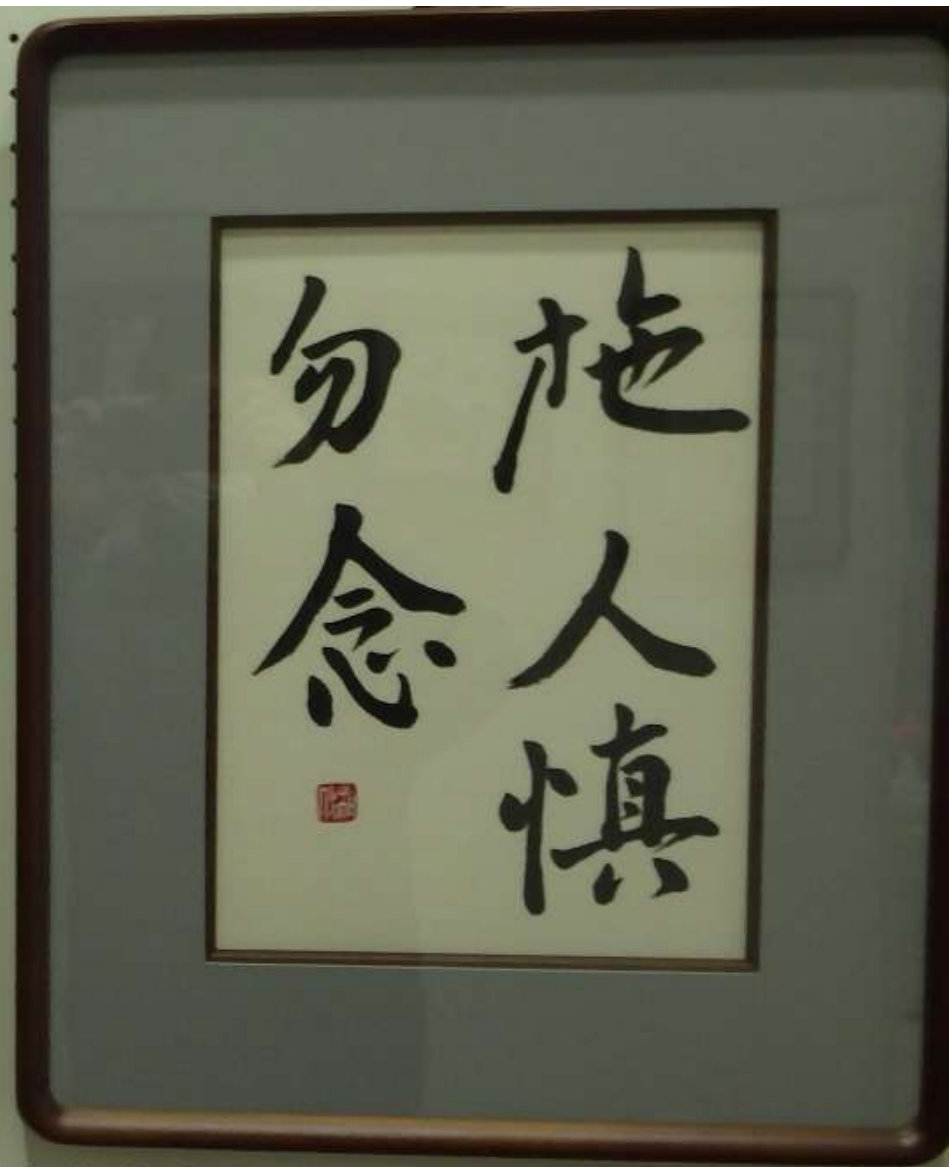 施人慎
勿念